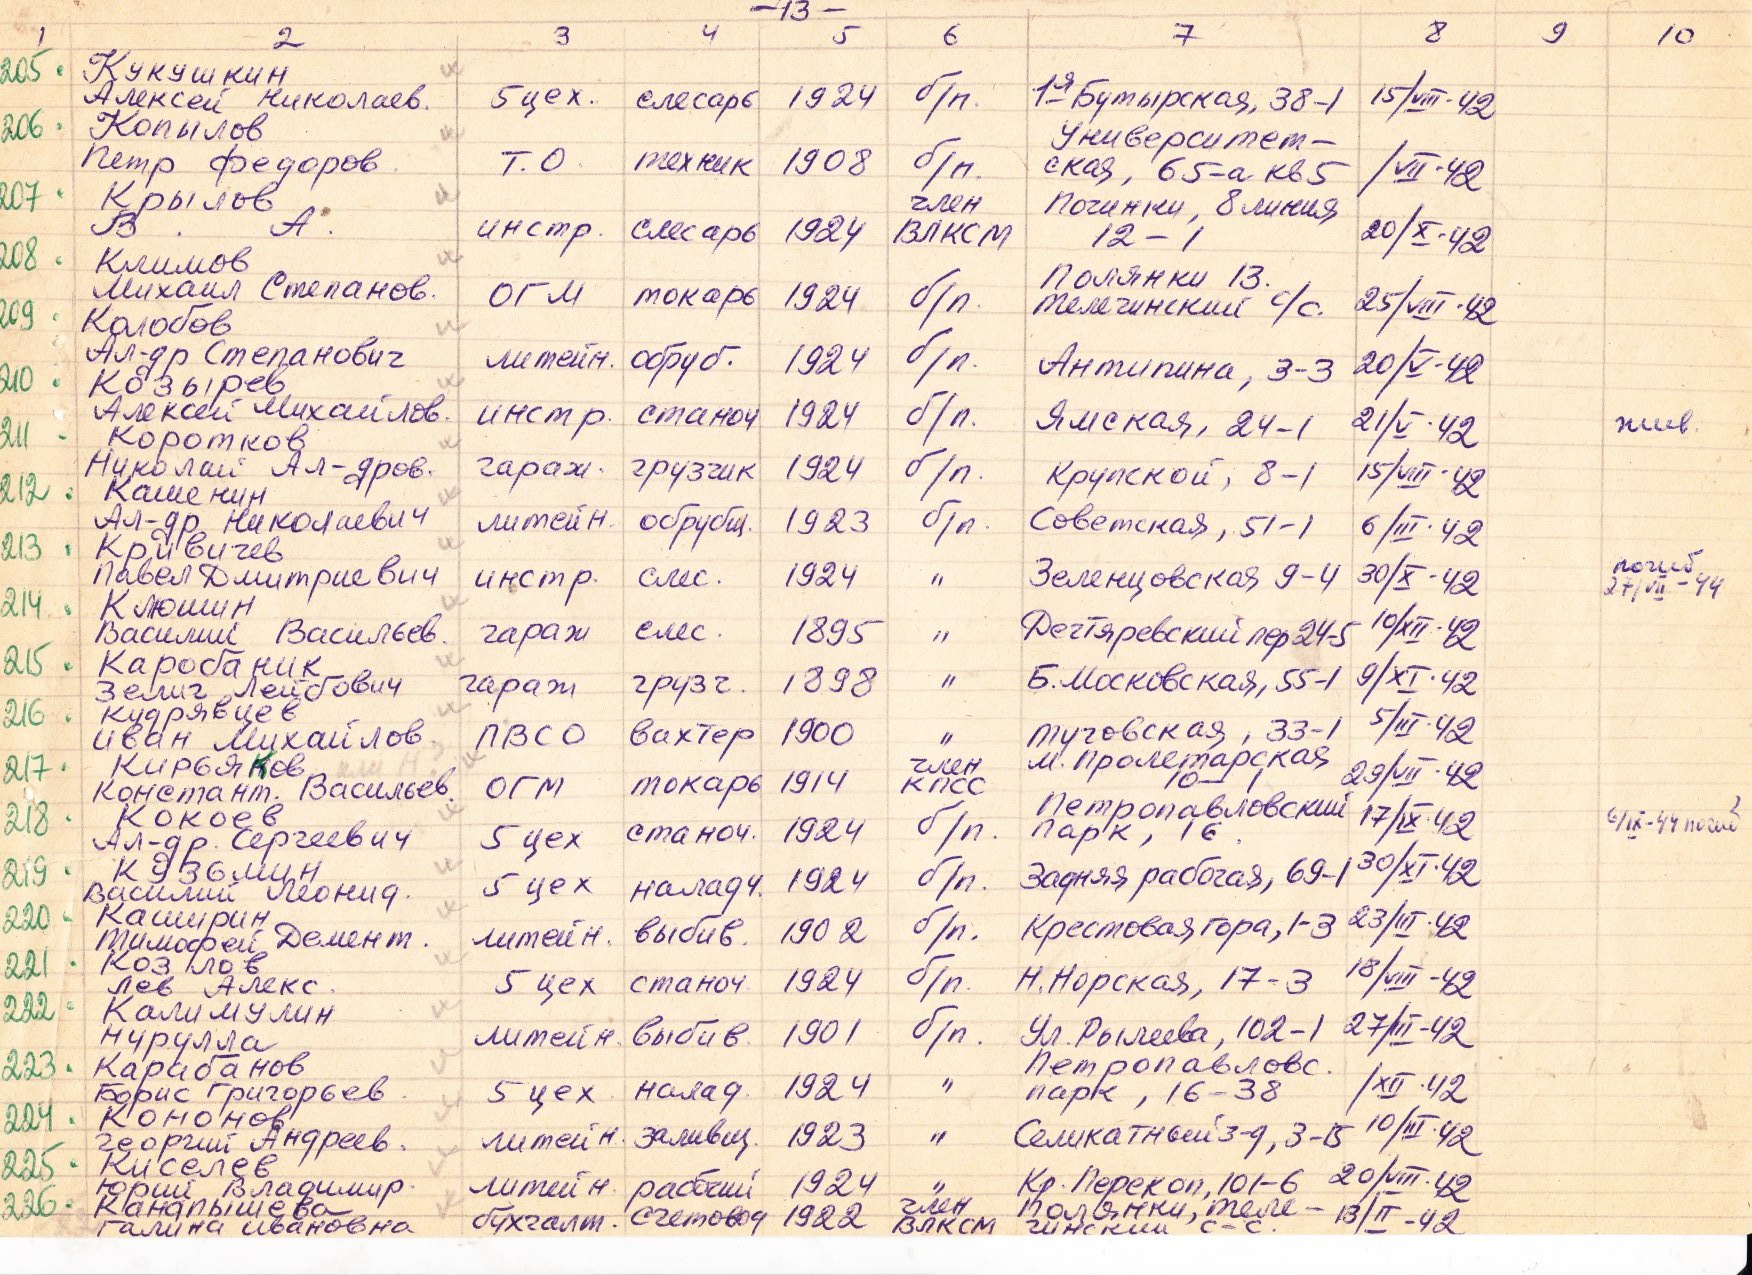 -13-
1 2 3 4 5 6 7 8 9 10
205. Кукушкин
Алексей Николаев. 5 цех. слесарь 1924 б/п. 1я Бутырская, 38-1 15/VIII-42
206. Копылов Университет-
Петр Федоров. Т.О. техник 1908 б/п. ская, 65-а кв 5 /VII-42
207. Крылов член Починки, 8 линия
В. А. инстр. слесарь 1924 ВЛКСМ 12-1 20/X-42
208. Климов Полянки 13.
Михаил Степанов. ОГМ токарь 1924 б/п. Телегинский с/с. 25/VIII-42
209. Колобов
Ал-др Степанович литейн. обруб. 1924 б/п. Антипина, 3-3 20/V-42
210. Козырев
Алексей Михайлов. инстр. станоч 1924 б/п. Ямская, 24-1 21/V-42 жив.
211. Коротков
Николай Ал-дров. гараж. грузчик 1924 б/п. Крупской, 8-1 15/VIII-42
212. Кашенин
Ал-др Николаевич литейн. обрубщ. 1923 б/п. Советская, 51-1 6/III-42
213. Кривичев погиб
Павел Дмитриевич инстр. слес. 1924 " Зеленцовская 9-4 30/X-42 27/VII-44
214. Клюшин
Василий Васильев. гараж слес. 1895 " Дегтяревский пер 24-5 10/XII-42
215. Каробаник
Зелиг Лейбович гараж грузч. 1898 " Б.Московская, 55-1 9/XI-42
216. Кудрявцев
Иван Михайлов. ПВСО вахтер 1900 " Тучовская, 33-1 5/III-42
217. Кирьяков член М. Пролетарская
Констант. Васильев. ОГМ токарь 1914 КПСС 10-1 29/VII-42
218. Кокоев Петропавловский
Ал-др. Сергеевич 5 цех станоч. 1924 б/п. парк, 16. 17/IX-42 6/IX-44 погиб
219. Кузьмин
Василий Леонид. 5 цех наладч. 1924 б/п. Задняя рабочая, 69-1 30/XI-42
220. Каширин
Тимофей Демент. литейн. выбив. 1902 б/п. Крестовая гора, 1-3 23/III-42
221. Козлов
Лев Алекс. 5 цех станоч 1924 б/п. Н.Норская, 17-3 18/VIII-42
222. Калимулин
Нурулла литейн. выбив. 1901 б/п. Ул. Рылеева, 102-1 27/III-42
223. Карабанов Петропавловс.
Борис Григорьев. 5 цех налад. 1924 " парк, 16-38 /XII-42
224. Кононов
Георгий Андреев. литейн. заливщ. 1923 " Селикатный з-д, 3-15 10/III-42
225. Киселев
Юрий Владимир. литейн. рабочий 1924 " Кр. Перекоп, 101-6 20/VIII-42
226. Канапышева член Полянки, Теле-
Галина Ивановна бухгалт. счетовод 1922 ВЛКСМ гинский с-с. 13/II-42